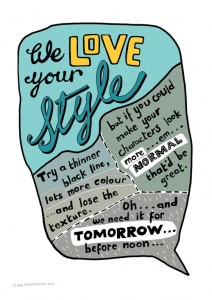 We LOVE
your
style
but if you could
make your
characters look
more...em...
NORMAL
that'd be
great.
Try a thinner
black line,
lots more colour
...and lose the
texture...
Oh......and
we need it for
TOMORROW...
before noon...